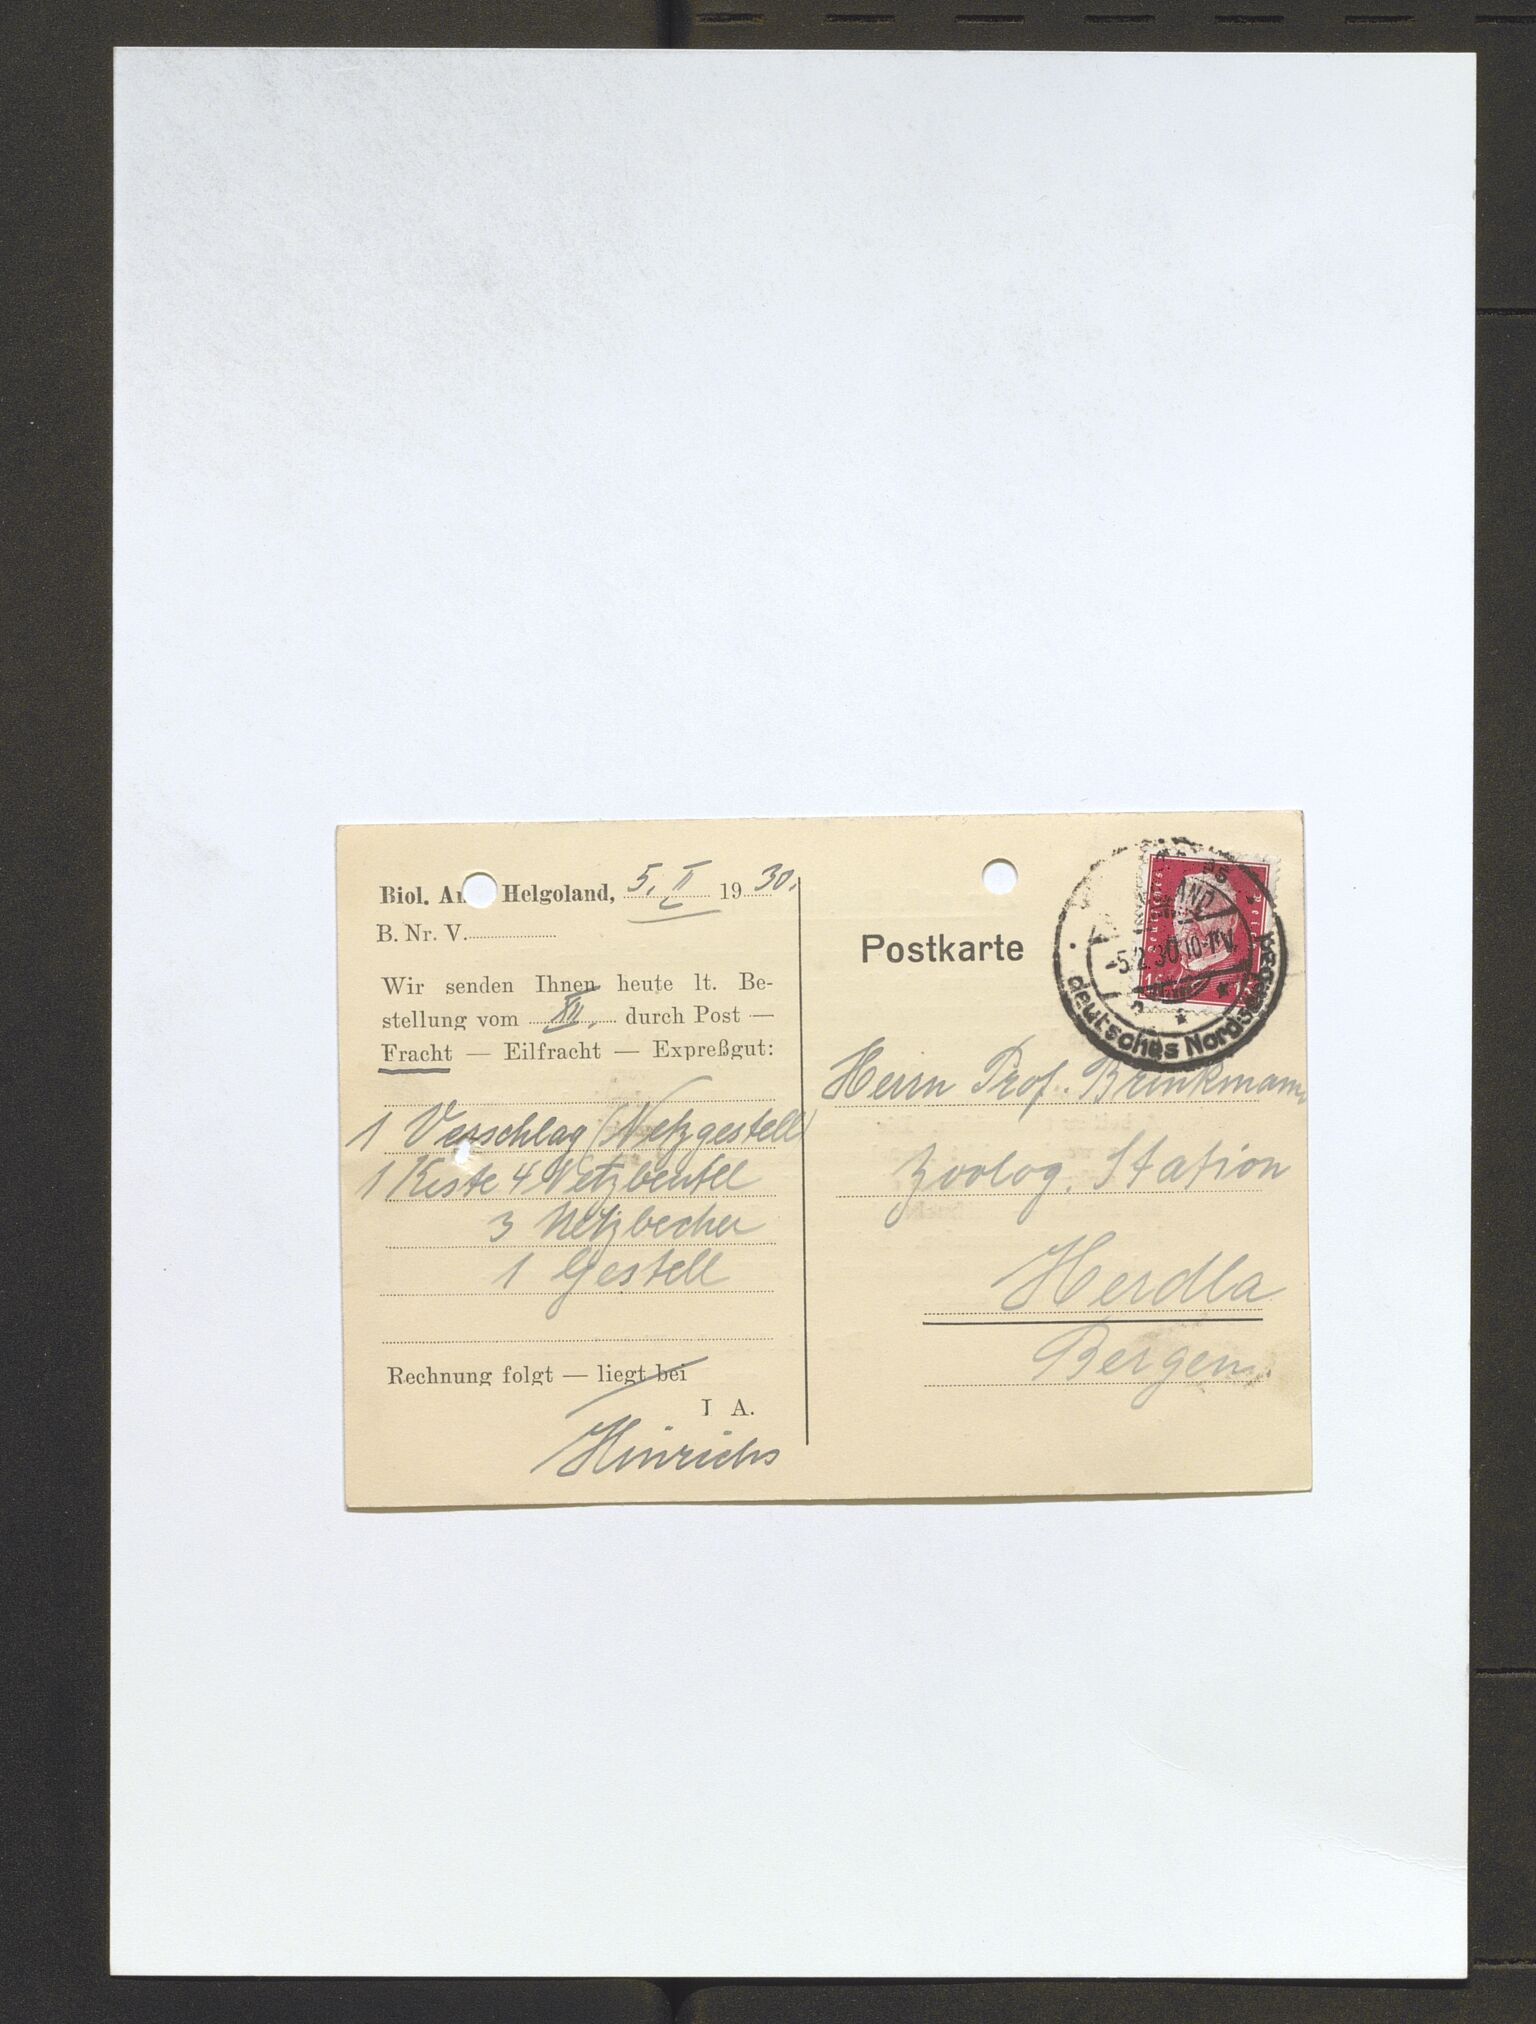 Biol. Helgoland, 5. II 1930.
B. Nr. V.
Wir senden Ihnen heute lt. Be-
stellung vom XII. durch Post —
Fracht — Eilfracht — Expreßgut:
1 Verschlag (Netzgestell)
1 Kiste 4 Netzbeutel
3 Netzbecher
1 Gestell
Rechnung folgt — liegt bei
I A.
Hinrichs
Postkarte
-5.2.30.10-11V.
deutsches Nordseebad
Herrn Prof. Brinkmann
Zoolog. Station
Herdla
Bergen.